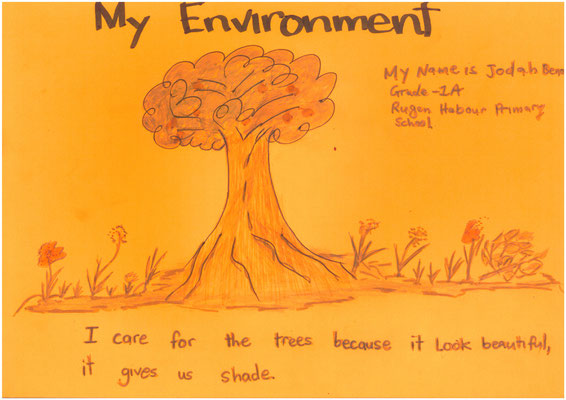 My Environment
My Name is Jodah Ben
Grade -1A
Rugen Habour Primary
School
I care for the trees because it Look beautiful,
it gives us shade.